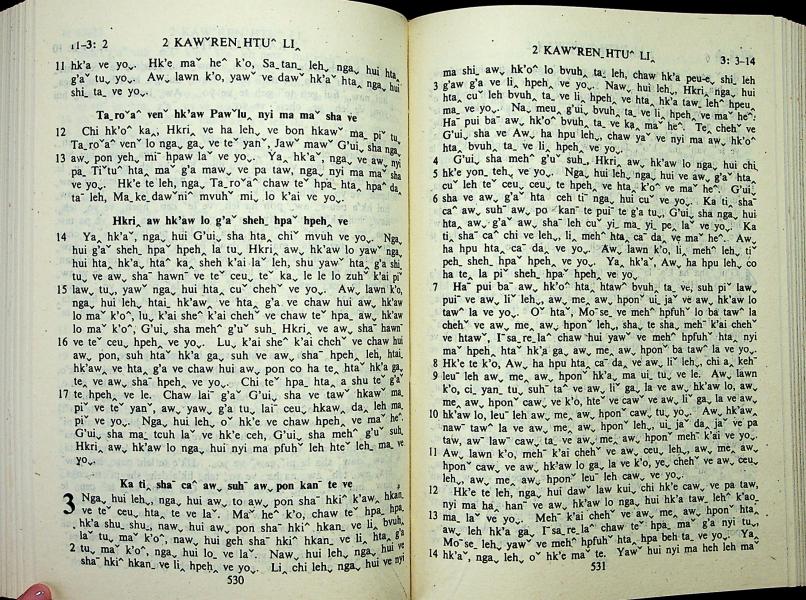 11-3: 2
2 KAWˇREN_HTUˆ LI‸
11 hk'a ve yoˬ. Hk'e maˇ heˆ k'o, Sa_tan_ lehˬ, ngaˬ hui hta‸
g'aˇ tuˬ yoˬ. Awˬ lawn k'o, yawˇ ve dawˇ hk'aˇ hta‸ ngaˬ hui
shi_ ta_ ve yoˬ.
Ta_roˇaˆ venˇ hk'aw Pawˇlu‸ nyi ma maˇ sha ve
12 Chi hk'oˆ ka‸, Hkri‸ ve ha leh‸ ve bon hkawˇ ma_ piˇ tu‸
Ta_roˇaˆ venˇ lo ngaˬ ga‸ ve teˇ yanˇ, Jawˇ mawˇ G'ui‸ sha ngaˬ
13 awˬ pon yehˬ miˉ hpaw laˇ ve yoˬ. Ya‸ hk'aˇ, ngaˬ ve awˬ nyi
pa‸ Tiˇtuˆ hta‸ maˇ g'a mawˬ ve pa taw, ngaˬ nyi ma maˇ sha
ve yoˬ. Hk'e te leh, ngaˬ Ta_roˇaˆ chaw teˇ hpa_ hta‸ hpaˆ da‸
taˉ leh, Ma_ke_dawˇniˆ mvuhˇ mi‸ lo k'ai ve yoˬ.
Hkri‸ aw‸ hk'aw lo g'aˇ sheh_ hpaˇ hpeh‸ ve
14 Ya‸ hk'aˇ, ngaˬ hui G'ui‸ sha hta‸ chiˆ mvuh ve yoˬ. Ngaˬ
hui g'aˇ sheh_ hpaˇ hpeh‸ la tuˬ, Hkri‸ awˬ hk'aw lo yawˇ ngaˬ
hui hta‸ hk'a‸ htaˆ ka‸ sheh k'ai laˇ leh, shu yawˇ hta‸ g'a shi‸
tu‸ ve aw‸ shaˉ hawnˉ ve teˇ ceu‸ teˇ ka‸ le le lo zuhˇ k'ai piˇ
15 lawˇ tuˬ, yawˇ ngaˬ hui hta‸ cuˇ chehˇ ve yoˬ. Awˬ lawn k'o,
ngaˬ hui leh‸ htai_ hk'aw‸ ve hta‸ g'a ve chaw hui awˬ hk'aw
lo maˇ k'oˆ, lu‸ k'ai sheˆ k'ai chehˇ ve chaw teˇ hpa_ awˬ hk'aw
lo maˇ k'oˆ, G'ui‸ sha mehˆ g'uˇ suh_ Hkri‸ ve awˬ shaˉ hawnˉ
16 ve teˇ ceu‸ hpeh‸ ve yoˬ. Lu‸ k'ai sheˆ k'ai chehˇ ve chaw hui
awˬ pon, suh htaˇ hk'a ga‸ suh ve aw‸ shaˉ hpeh‸ leh, htai_
hk'aw‸ ve hta‸ g'a ve chaw hui awˬ pon co ha te_ htaˇ hk'a ga‸
te_ ve aw‸ shaˉ hpeh‸ ve yoˬ. Chi teˇ hpa_ hta‸ a shu teˇ g'aˇ
17 te hpeh‸ ve le. Chaw laiˇ g'aˇ G'ui‸ sha ve tawˇ hkawˇ ma‸
piˇ ve teˇ yanˇ, aw‸ yaw‸ g'a tu‸ laiˇ ceu‸ hkaw‸ da‸ leh ma_
piˇ ve yoˬ. Ngaˬ hui lehˬ, oˇ hk'e ve chaw hpeh‸ ve maˇ heˆ.
G'ui‸ sha ma_ tcuh laˇ ve hk'e ceh, G'ui‸ sha mehˆ g'uˇ suh_
Hkri‸ awˬ hk'aw lo ngaˬ hui nyi ma pfuhˇ leh hteˇ leh_ ma_ ve
yoˬ.
Ka ti‸ shaˉ caˆ aw‸ suhˉ aw‸ pon kanˉ te ve
3 Ngaˬ hui lehˬ, ngaˬ hui awˬ to awˬ pon shaˉ hkiˆ k'aw‸ hkan_
ve teˇ ceu‸ hta‸ te ve laˇ. Maˇ heˆ k'o, chaw teˇ hpa_ hpa_
hk'a shu shu‸, nawˬ hui awˬ pon shaˉ hkiˆ hkan_ ve li‸ bvuh_
laˇ tu‸ maˇ k'oˆ, nawˬ hui geh shaˉ hkiˆ hkan_ ve li‸ hta‸ g'a
2 tu‸ maˇ k'oˆ, ngaˬ hui lo_ ve laˇ. Nawˬ hui lehˬ ngaˬ hui ve
shaˉ hkiˆ hkan_ ve li‸ hpeh‸ ve yoˬ. Li‸ chi lehˬ, ngaˬ hui ve nyi
530
2 KAWˇREN_HTUˆ LI‸
3: 3-14
ma shi_ awˬ hk'oˆ lo bvuh_ ta_ leh, chaw hk'a peu-e‸ shi_ leh
3 g'aw g'a ve li‸ hpeh‸ ve yoˬ. Nawˬ hui lehˬ, Hkri‸ ngaˬ hui
hta‸ cuˇ leh bvuh_ ta_ ve li‸ hpeh‸ ve hta‸ hk'a tawˬ lehˆ hpeu_
ma_ ve yoˬ. Na‸ meu‸ g'ui‸ bvuh_ ta_ ve li‸ hpeh‸ ve maˇ heˆ.
Haˉ pui baˉ aw‸ hk'oˆ bvuh_ ta_ ve ka‸ maˇ heˆ. Te‸ chehˇ ve
G'ui‸ sha ve Aw‸ ha hpu leh‸ chaw yaˇ ve nyi ma awˬ hk'oˆ
hta‸ bvuh_ ta_ ve li‸ hpeh‸ ve yoˬ.
4 G'ui‸ sha mehˆ g'uˇ suh_ Hkri‸ awˬ hk'aw lo ngaˬ hui chi_
5 hk'e yon_ teh‸ ve yoˬ. Ngaˬ hui lehˬ ngaˬ hui ve awˬ g'aˇ hta‸
cuˇ leh teˇ ceu‸ ceu‸ te hpeh‸ ve hta‸ k'oˆ ve maˇ heˆ. G'ui‸
6 sha ve awˬ g'aˇ hta‸ ceh tiˉ ngaˬ hui cuˇ ve yoˬ. Ka ti‸ shaˉ
caˆ aw‸ suhˉ aw‸ po_ kanˉ te puiˉ te g'a tuˬ, G'ui‸ sha ngaˬ hui
hta‸ awˬ g'aˇ awˬ shaˉ leh cuˇ yi_ ma_ yi_ pe_ laˇ ve yoˬ. Ka
ti‸ shaˉ caˆ chi ve lehˬ, li‸ mehˆ hta‸ caˉ da_ ve maˇ heˆ. Awˬ
ha hpu hta‸ caˉ da_ ve yoˬ. Awˬ lawn k'o, li‸ mehˆ lehˬ, tiˇ
peh_ sheh_ hpaˇ hpeh‸ ve yoˬ. Ya‸ hk'aˇ, Awˬ ha hpu leh‸ co
ha te_ la piˇ sheh_ hpaˇ hpeh‸ ve yoˬ.
7 Haˉ pui baˉ aw‸ hk'oˆ hta‸ htawˆ bvuh_ ta_ ve, suh piˇ law‸
puiˉ ve aw‸ liˇ leh‸, aw‸ me‸ aw‸ hpon ui_ jaˇ ve awˬ hk'aw lo
tawˆ la ve yoˬ. Oˇ htaˇ, Moˉse_ ve mehˆ hpfuhˇ lo ba tawˆ la
chehˇ ve aw‸ me‸ aw‸ hponˇ leh‸, sha_ te sha_ mehˉ k'ai chehˇ
ve htawˇ, Iˉsa_re_laˆ chaw hui yawˇ ve mehˆ hpfuhˇ hta‸ nyi
maˇ hpeh_ htaˇ hk'a ga‸ aw‸ me‸ aw‸ hponˇ ba tawˆ la ve yoˬ.
8 Hk'e te k'o, Awˬ ha hpu hta‸ caˉ da_ ve aw‸ liˇ leh‸, chi a_ kehˉ
9 leuˉ leh aw‸ me‸ aw‸ hponˇ hk'a_ ma ui_ tu‸ ve le. Awˬ lawn
k'o, ci‸ yan_ tu‸ suhˉ taˆ ve aw‸ liˇ ga‸ la ve awˬ hk'aw lo, aw‸
me‸ aw‸ hponˇ caw‸ ve k'o, hteˇ ve cawˇ ve aw‸ liˇ ga‸ la ve awˬ
10 hk'aw lo, leuˉ leh aw‸ me‸ aw‸ hponˇ caw‸ tu‸ yoˬ. Awˬ hk'aw‸
nawˉ tawˆ la ve aw‸ me‸ aw‸ hponˇ leh‸, ui_ jaˇ da_ jaˇ ve pa
taw, awˉ lawˉ caw‸ ta_ ve aw‸ me‸ aw‸ hponˇ mehˉ k'ai ve yoˬ.
11 Awˬ lawn k'o, mehˉ k'ai chehˇ ve aw‸ ceu‸ leh‸, aw‸ me‸ aw‸
hponˇ caw‸ ve awˬ hk'aw lo ga‸ la ve k'o, ye‸ chehˇ ve aw‸ ceu‸
leh‸, aw‸ me‸ aw‸ hponˇ leuˉ leh caw‸ ve yoˬ.
12 Hk'e te leh, ngaˬ hui dawˇ law kui‸ chi hk'e caw‸ ve pa taw,
nyi ma ha‸ hanˉ ve awˬ hk'aw lo ngaˬ hui hk'a taw_ lehˆ k'ao_
13 ma_ laˇ ve yoˬ. Mehˉ k'ai chehˇ ve aw‸ me‸ aw‸ hponˇ hta‸
aw‸ leh hk'a ga‸ Iˉsa_re_laˆ chaw teˇ hpa_ maˇ g'a nyi tu‸,
Moˉse_ leh‸ yawˇ ve mehˆ hpfuhˇ hta‸ hpa beh ta_ ve yoˬ. Ya‸
14 hk'aˇ, ngaˬ lehˬ, oˇ hk'e maˇ te. Yawˇ hui nyi ma heh leh maˇ
531